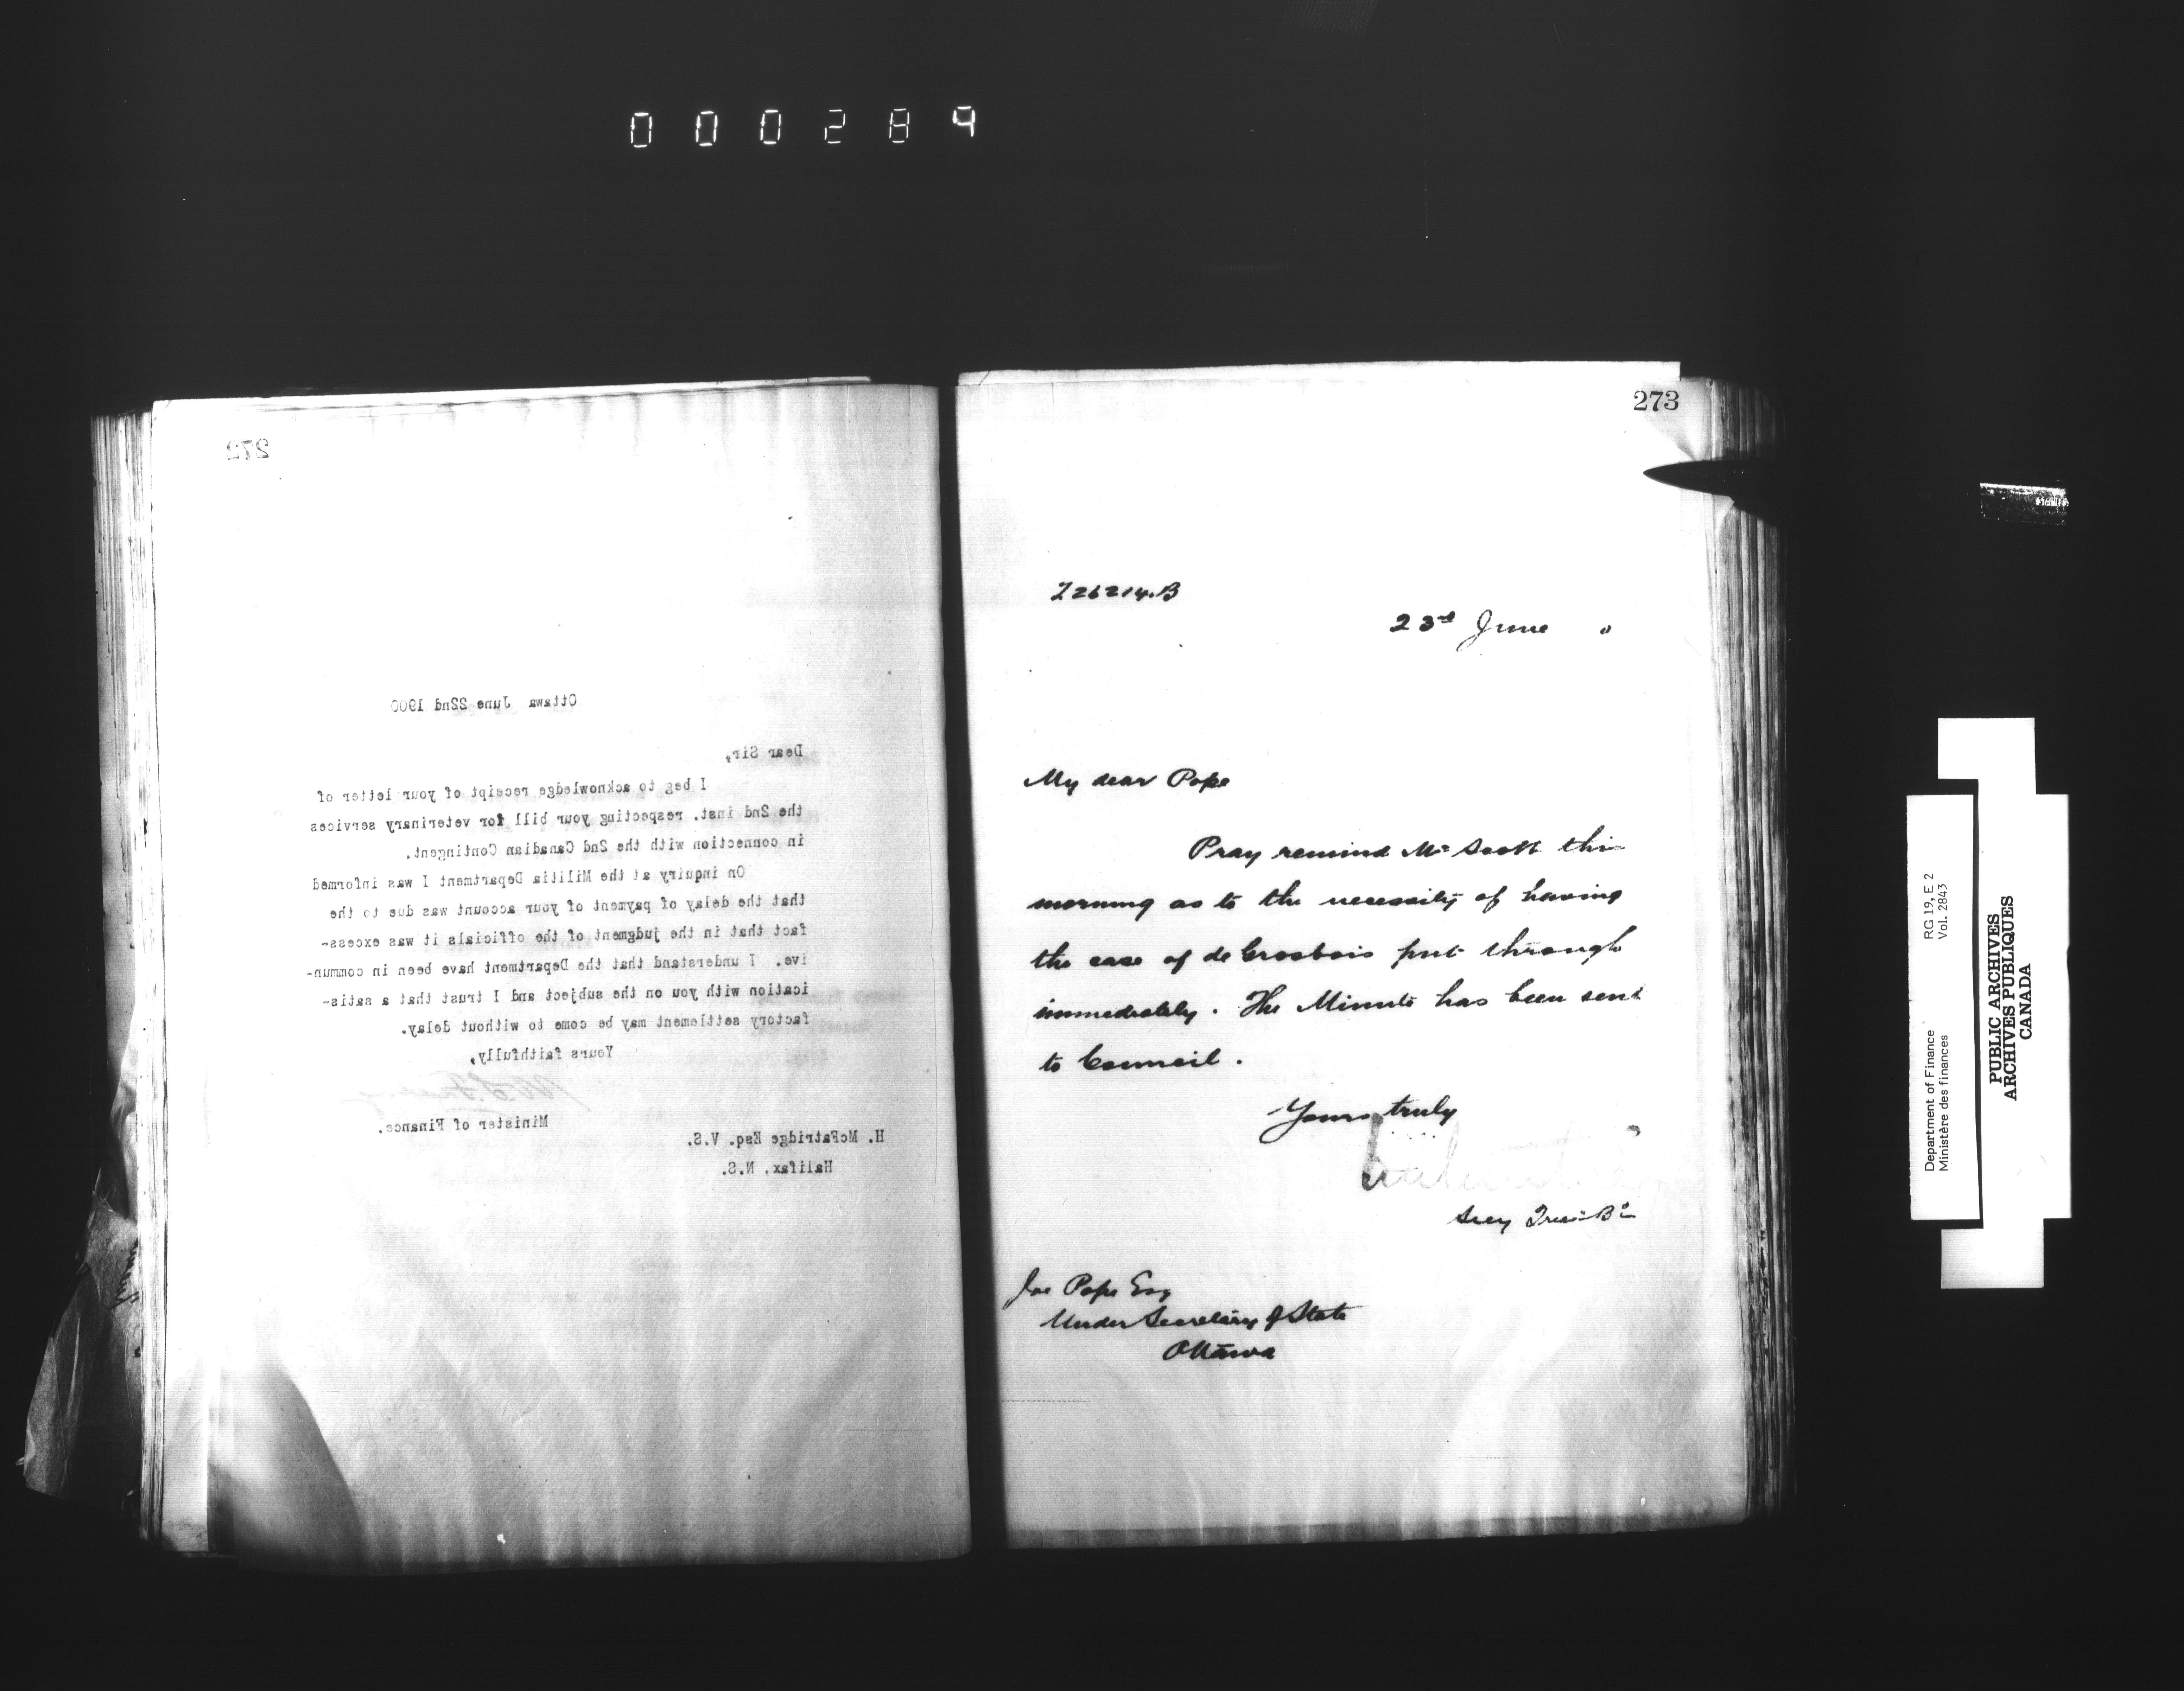 000289
272
Ottawa June 22nd 1900
Dear Sir,
I beg to acknowledge receipt of your letter of
the 2nd inst. respecting your bill for veterinary services
in connection with the 2nd Canadian Contingent.
On inquiry at the Militia Department I was informed
that the delay of payment of your account was due to the
fact that in the judgment of the officials it was excess-
ive. I understand that the Department have been in commun-
ication with you on the subject and I trust that a satis-
factory settlement may be come to without delay.
Yours faithfully,
Minister of Finance.
H. McFatridge Esq. V.S.
Halifax, N.S.
273
226214.B
23rd June 0
My dear Pope
Pray remind Mr Scott this
morning as to the necessity of having
the case of de Grosbois put through
immediately. The Minute has been sent
to Council.
Yours truly
Secy Treas Bd
Joe Pope Esq
Under Secretary of State
Ottawa
Department of Finance RG 19, E 2
Ministère des finances Vol. 2843
PUBLIC ARCHIVES
ARCHIVES PUBLIQUES
CANADA